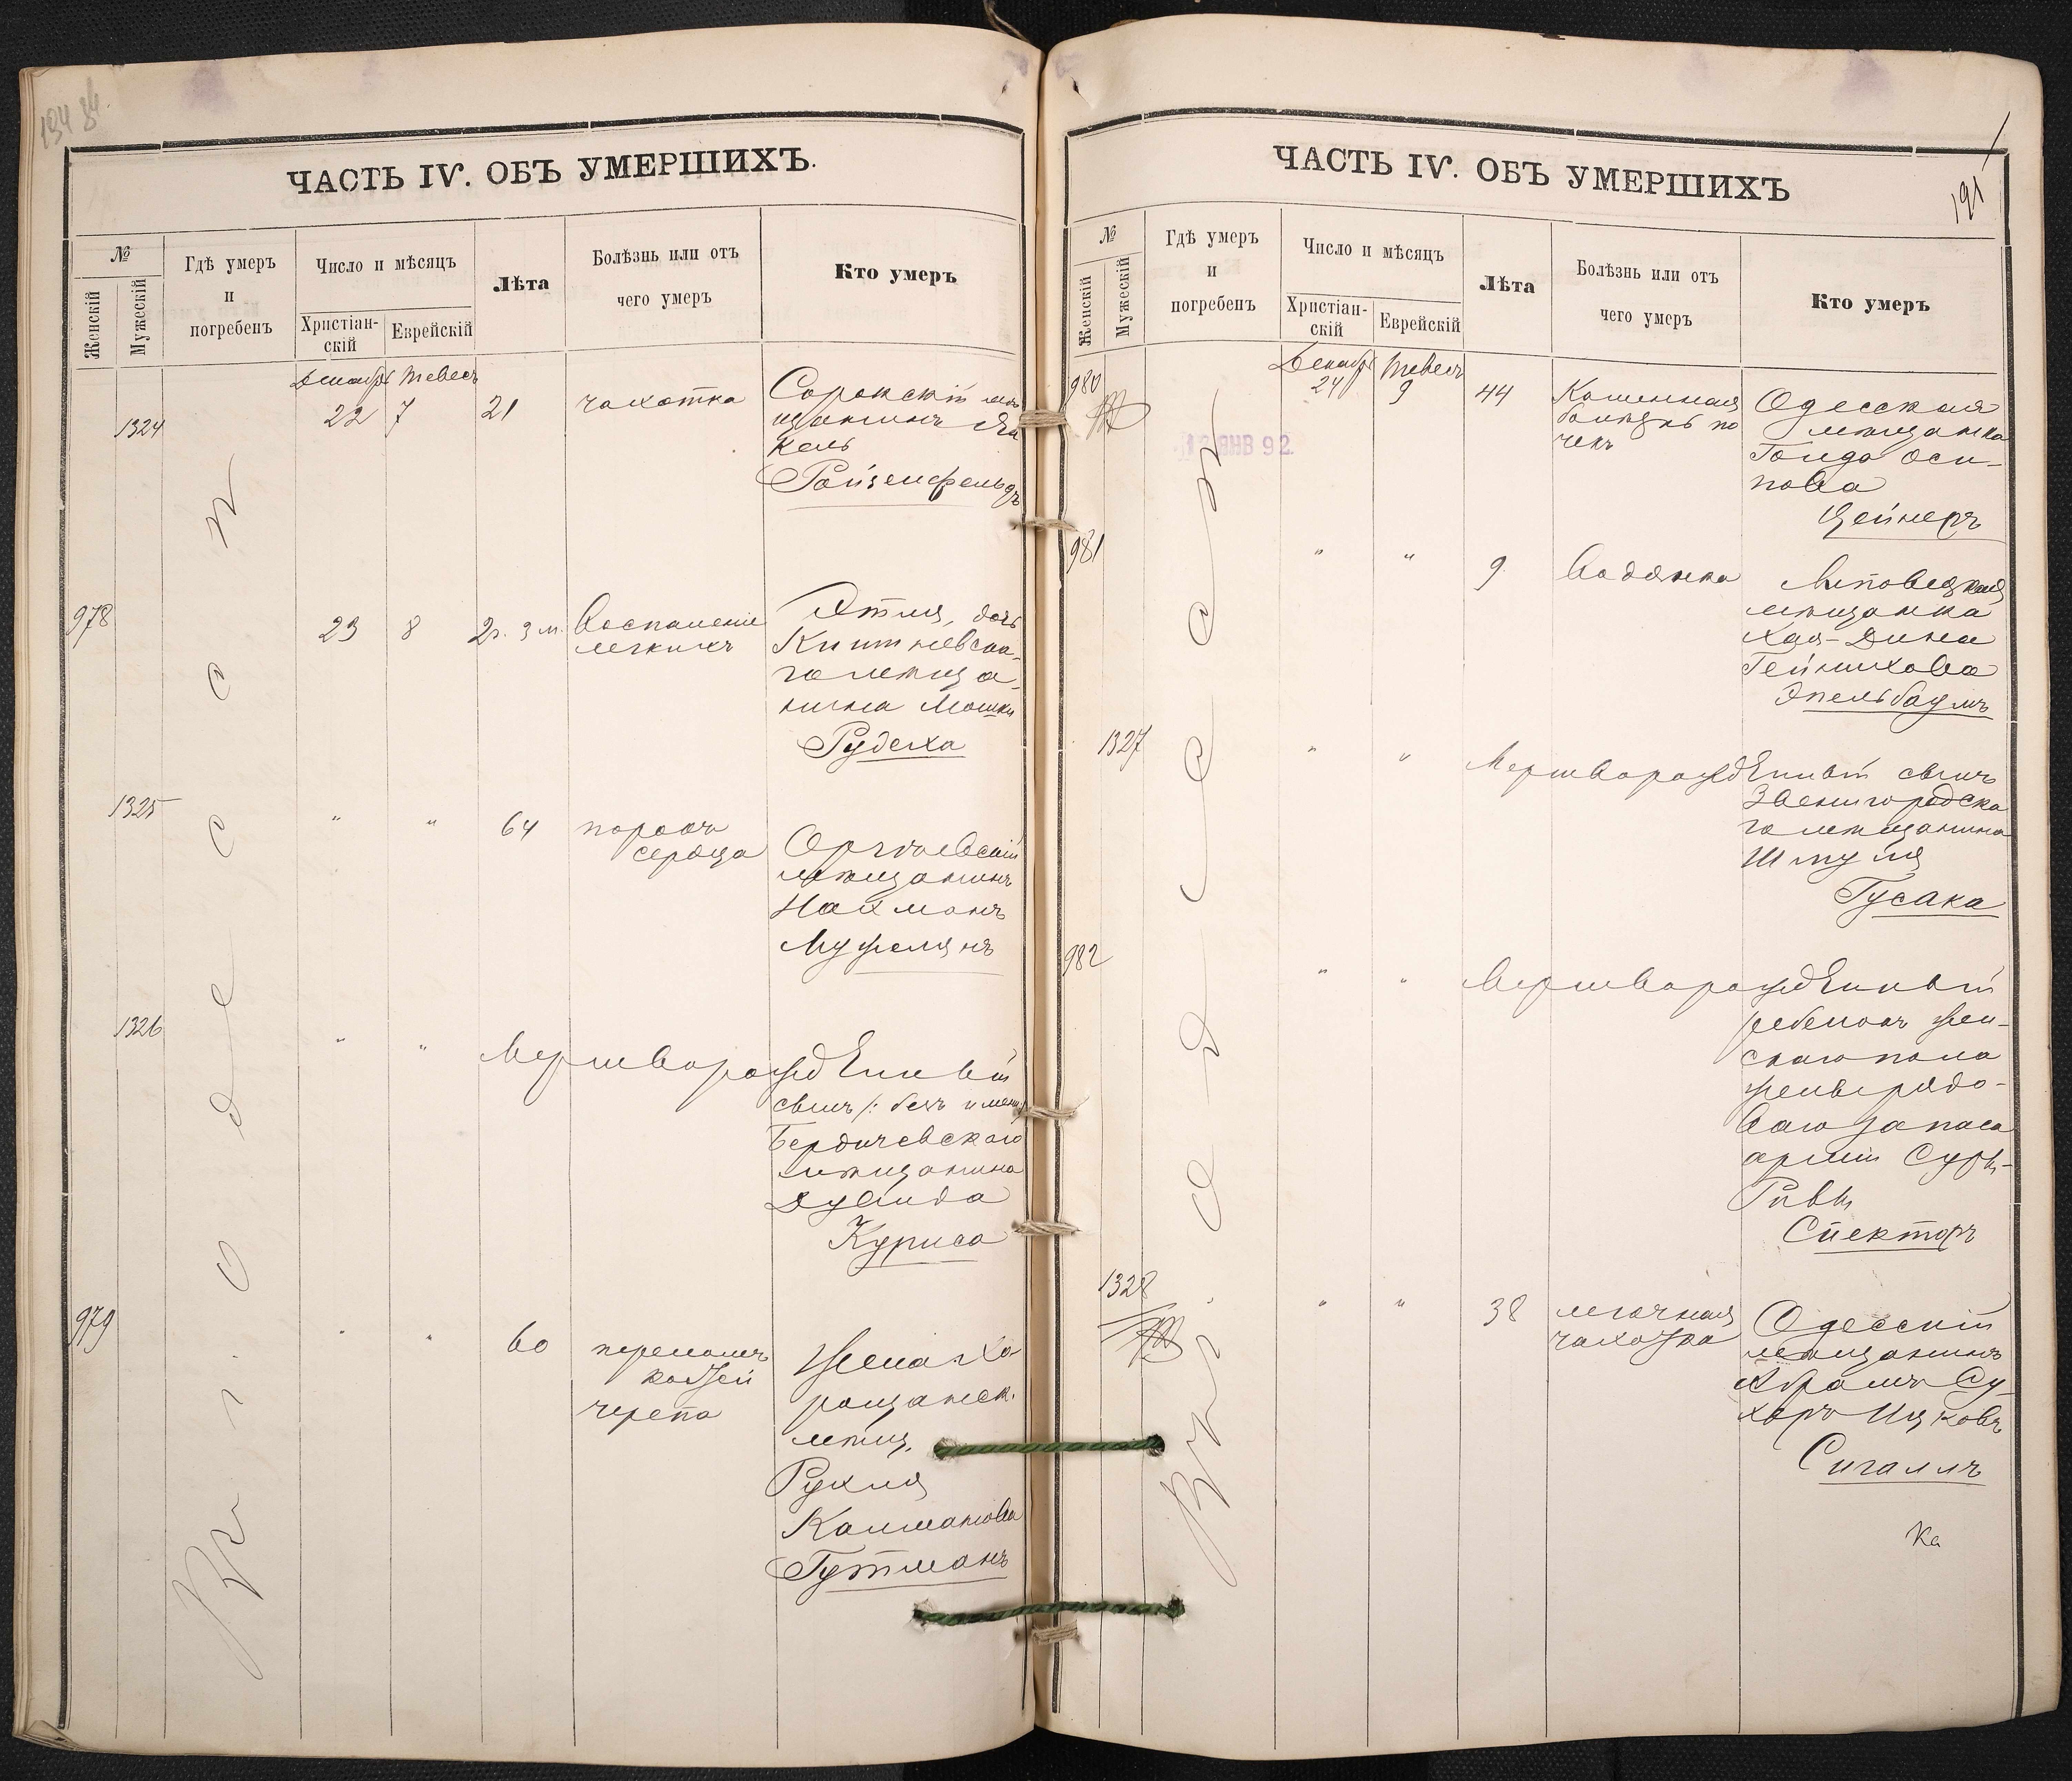 ЧАСТЬ IV. ОБЪ УМЕРШИХЪ.
№
Женскій
Мужескій
Гдѣ умеръ
и
погребенъ
Число и мѣсяцъ
Христіан-
скій
Еврейскій
Лѣта
Болѣзнь или отъ
чего умеръ
Кто умеръ
Въ г. Одессѣ
Декабрь Тевесъ
1324
22
7
21
чахотка
Сорокскій мѣ
щанинъ
кель
Ройзенфельдъ
978
23
8
2 г. 3 м.
Воспаленіе
легкихъ
Этля, дочь
Кишиневска-
го мѣща-
нина Мошки
Рудеха
1325
"
"
64
порокъ
сердца
Оргѣевскій
мѣщанинъ
Нахманъ
Мужелянъ
1326
"
"
Мертворожденный
сынъ /: безъ имени
Бердичевскаго
мѣщанина
Дувида
Куриса
979
"
"
60
переломъ
костей
черепа
Жена Хо-
рощанск.
мѣщ.
Рухля
Калманова
Гутманъ
ЧАСТЬ IV. ОБЪ УМЕРШИХЪ
191
№
Женскій
Мужескій
Гдѣ умеръ
и
погребенъ
Число и мѣсяцъ
Христіан-
скій
Еврейскій
Лѣта
Болѣзнь или отъ
чего умеръ
Кто умеръ
Въ г. Одессѣ
Декабрь Тевесъ
980
24
9
44
Каменная
болѣзнь по
чекъ
Одесская
мѣщанка
Голда Оси-
пова
Цейнеръ
ЯНВ 92
981
"
"
9
Водянка
Липовецкая
мѣщанка
Хая-Дина
Гейнихова
Эпельбаумъ
1327
"
"
Мертворожденный сынъ
Звенигородска
го мѣщанина
Шмуля
Гусака
982
"
"
Мертворожденный
ребенокъ жен-
скаго пола
жены рядо-
ваго запаса
арміи Суры-
Ривы
Спекторъ
1328
"
"
38
легочная
чахотка
Одесскій
мѣщанинъ
Абрамъ Су-
харъ Ицковъ
Сигаллъ
Ка